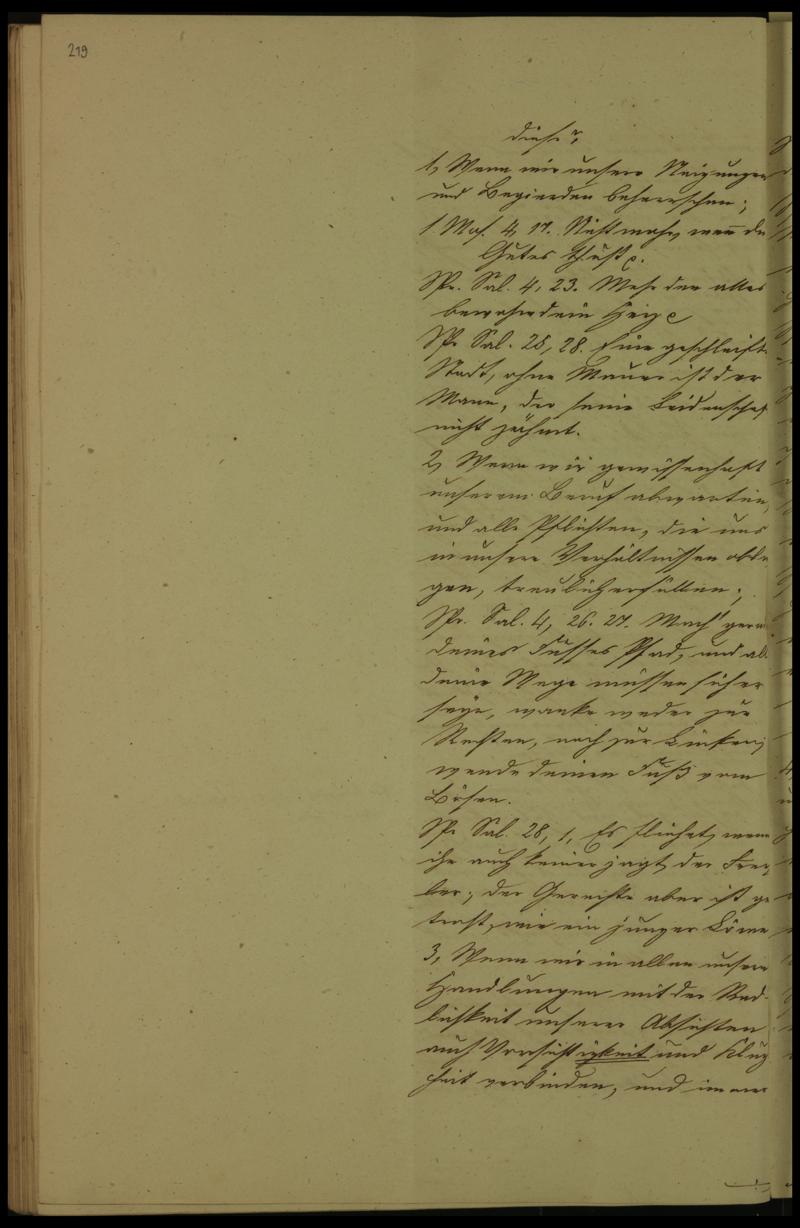 219
diese?
1, Wenn wir unsere Neigungen
und Begierden beherrschen;
1 Mos. 4, 17. Nicht wahr, wenn du
Gutes thust p.
Spr. Sal. 4, 23. Mehr den alles
bewahre dein Herz p
Spr. Sal. 25, 28. Eine geschleift
Stadt, ohne Mauer ist der
Mann, der seine Leidenschaf
nicht zähmt.
2, Wenn wir gewissenhaft
unserem Beruf abwarten,
und alle Pflichten, die uns
in unsere Verhältnissen oblie
gen, treulich erfüllen;
Spr. Sal. 4, 26. 27. Mach' gera
deines Fusses Pfad, und all
deine Wege müssen sicher
seyn, wanke weder zur
Rechten, noch zur Linken;
wende deinen Fuß vom
Bösen.
Spr Sal. 28, 1, Es fliehet, wenn
ihn auch keiner jagt, der Frev
ler; der Gerechte aber ist ge
trost, wie ein junger Löwe
3, Wenn wir in allen unsere
Handlungen mit der Red-
lichkeit unserer Absichten
auch Vorsichtigkeit und Klug
heit verbinden, und immer